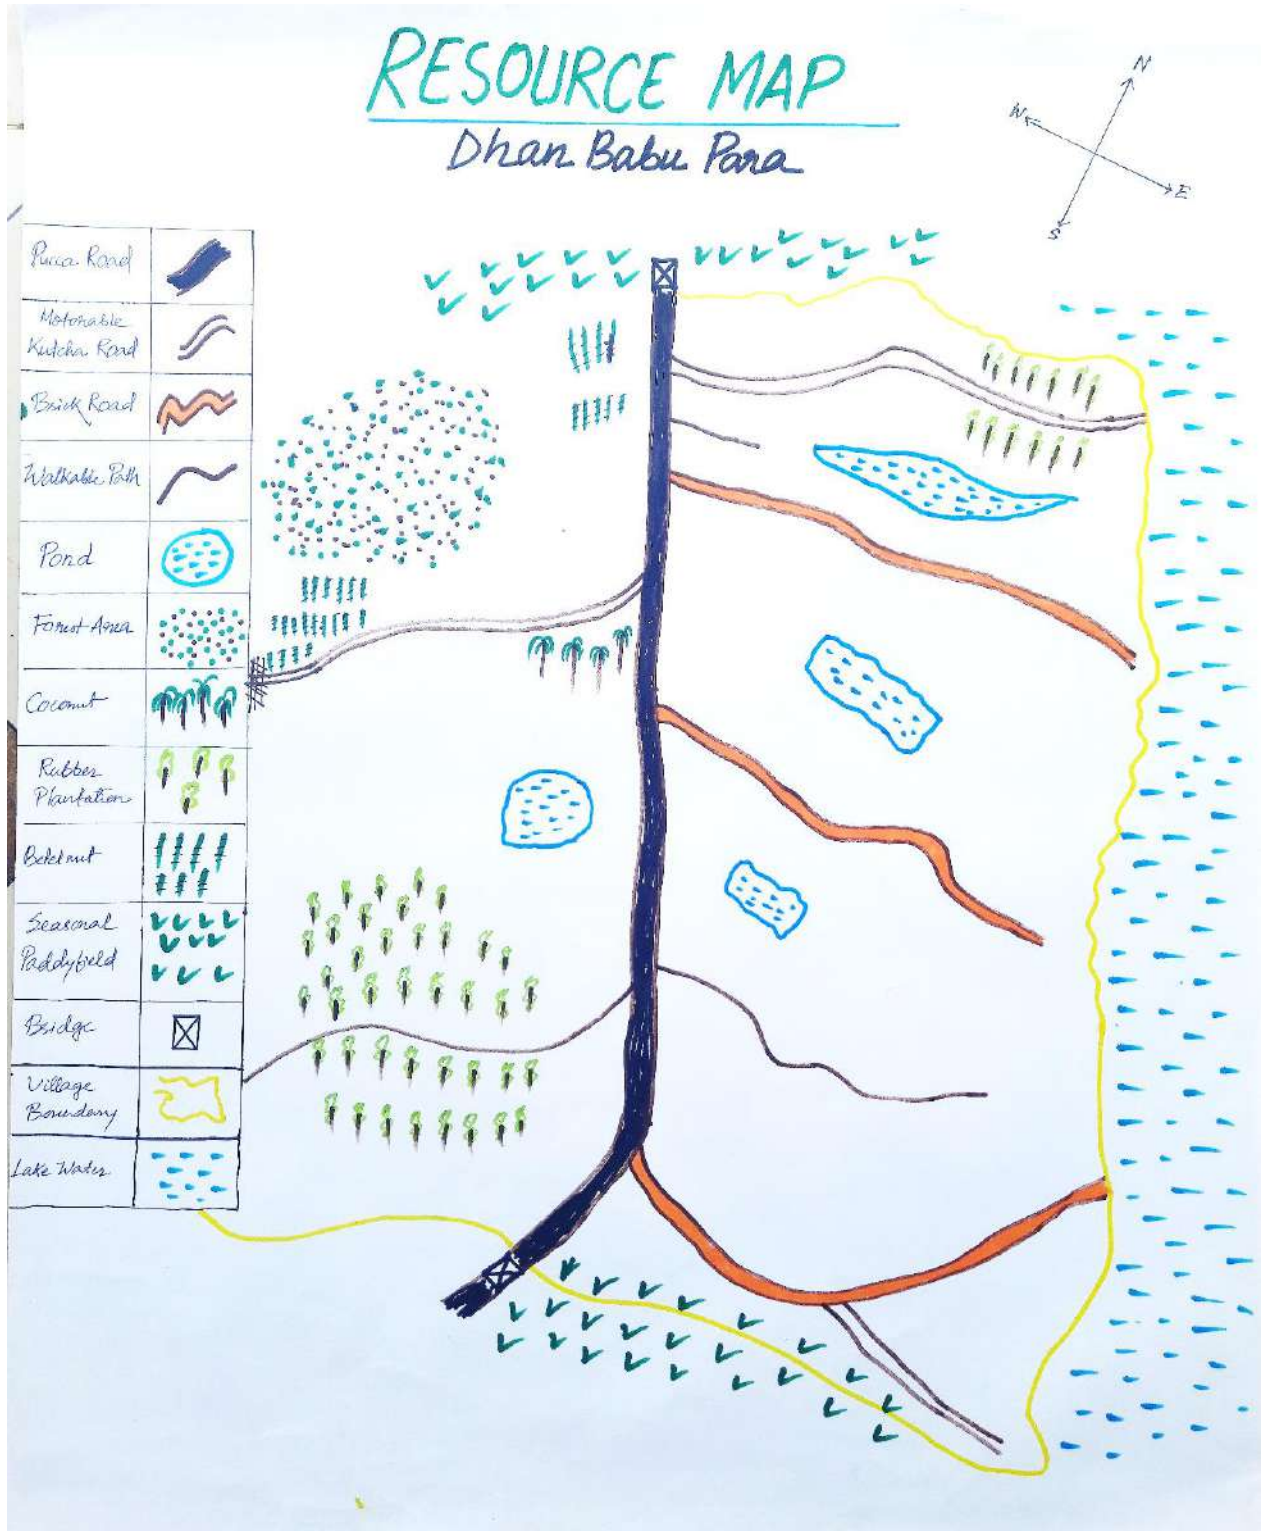 RESOURCE MAP
Dhan Babu Para
N
W
E
S
Pucca Road
Motorable
Kutcha Road
Brick Road
Walkable Path
Pond
Forest Area
Coconut
Rubber
Plantation
Betelnut
Seasonal
Paddyfield
Bridge
Village
Boundary
Lake Water